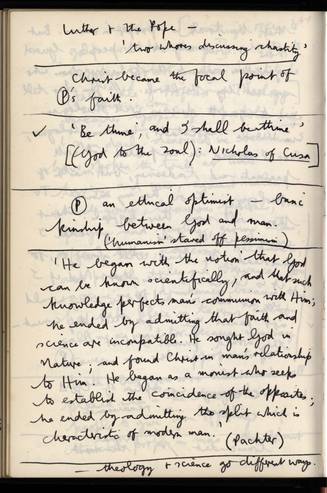 Luther + the Pope —
'two whores discussing chastity'
Christ became the focal point of
Ⓟ's faith.
✓ 'Be thine, and I shall be thine'
[(God to the soul): Nicholas of Cusa]
Ⓟ an ethical optimist — basic
kinship between God and man.
('humanism' staved off pessimism)
'He began with the notion that God
can be known scientifically, and that such
knowledge perfects man's communion with Him;
he ended by admitting that faith and
science are incompatible. He sought God in
Nature; and found Christ in man's relationship
to Him. He began as a monist who seeks
to establish the coincidence of the opposites;
he ended by admitting the split which is
characteristic of modern man.' (Pachter)
— theology + science go different ways.